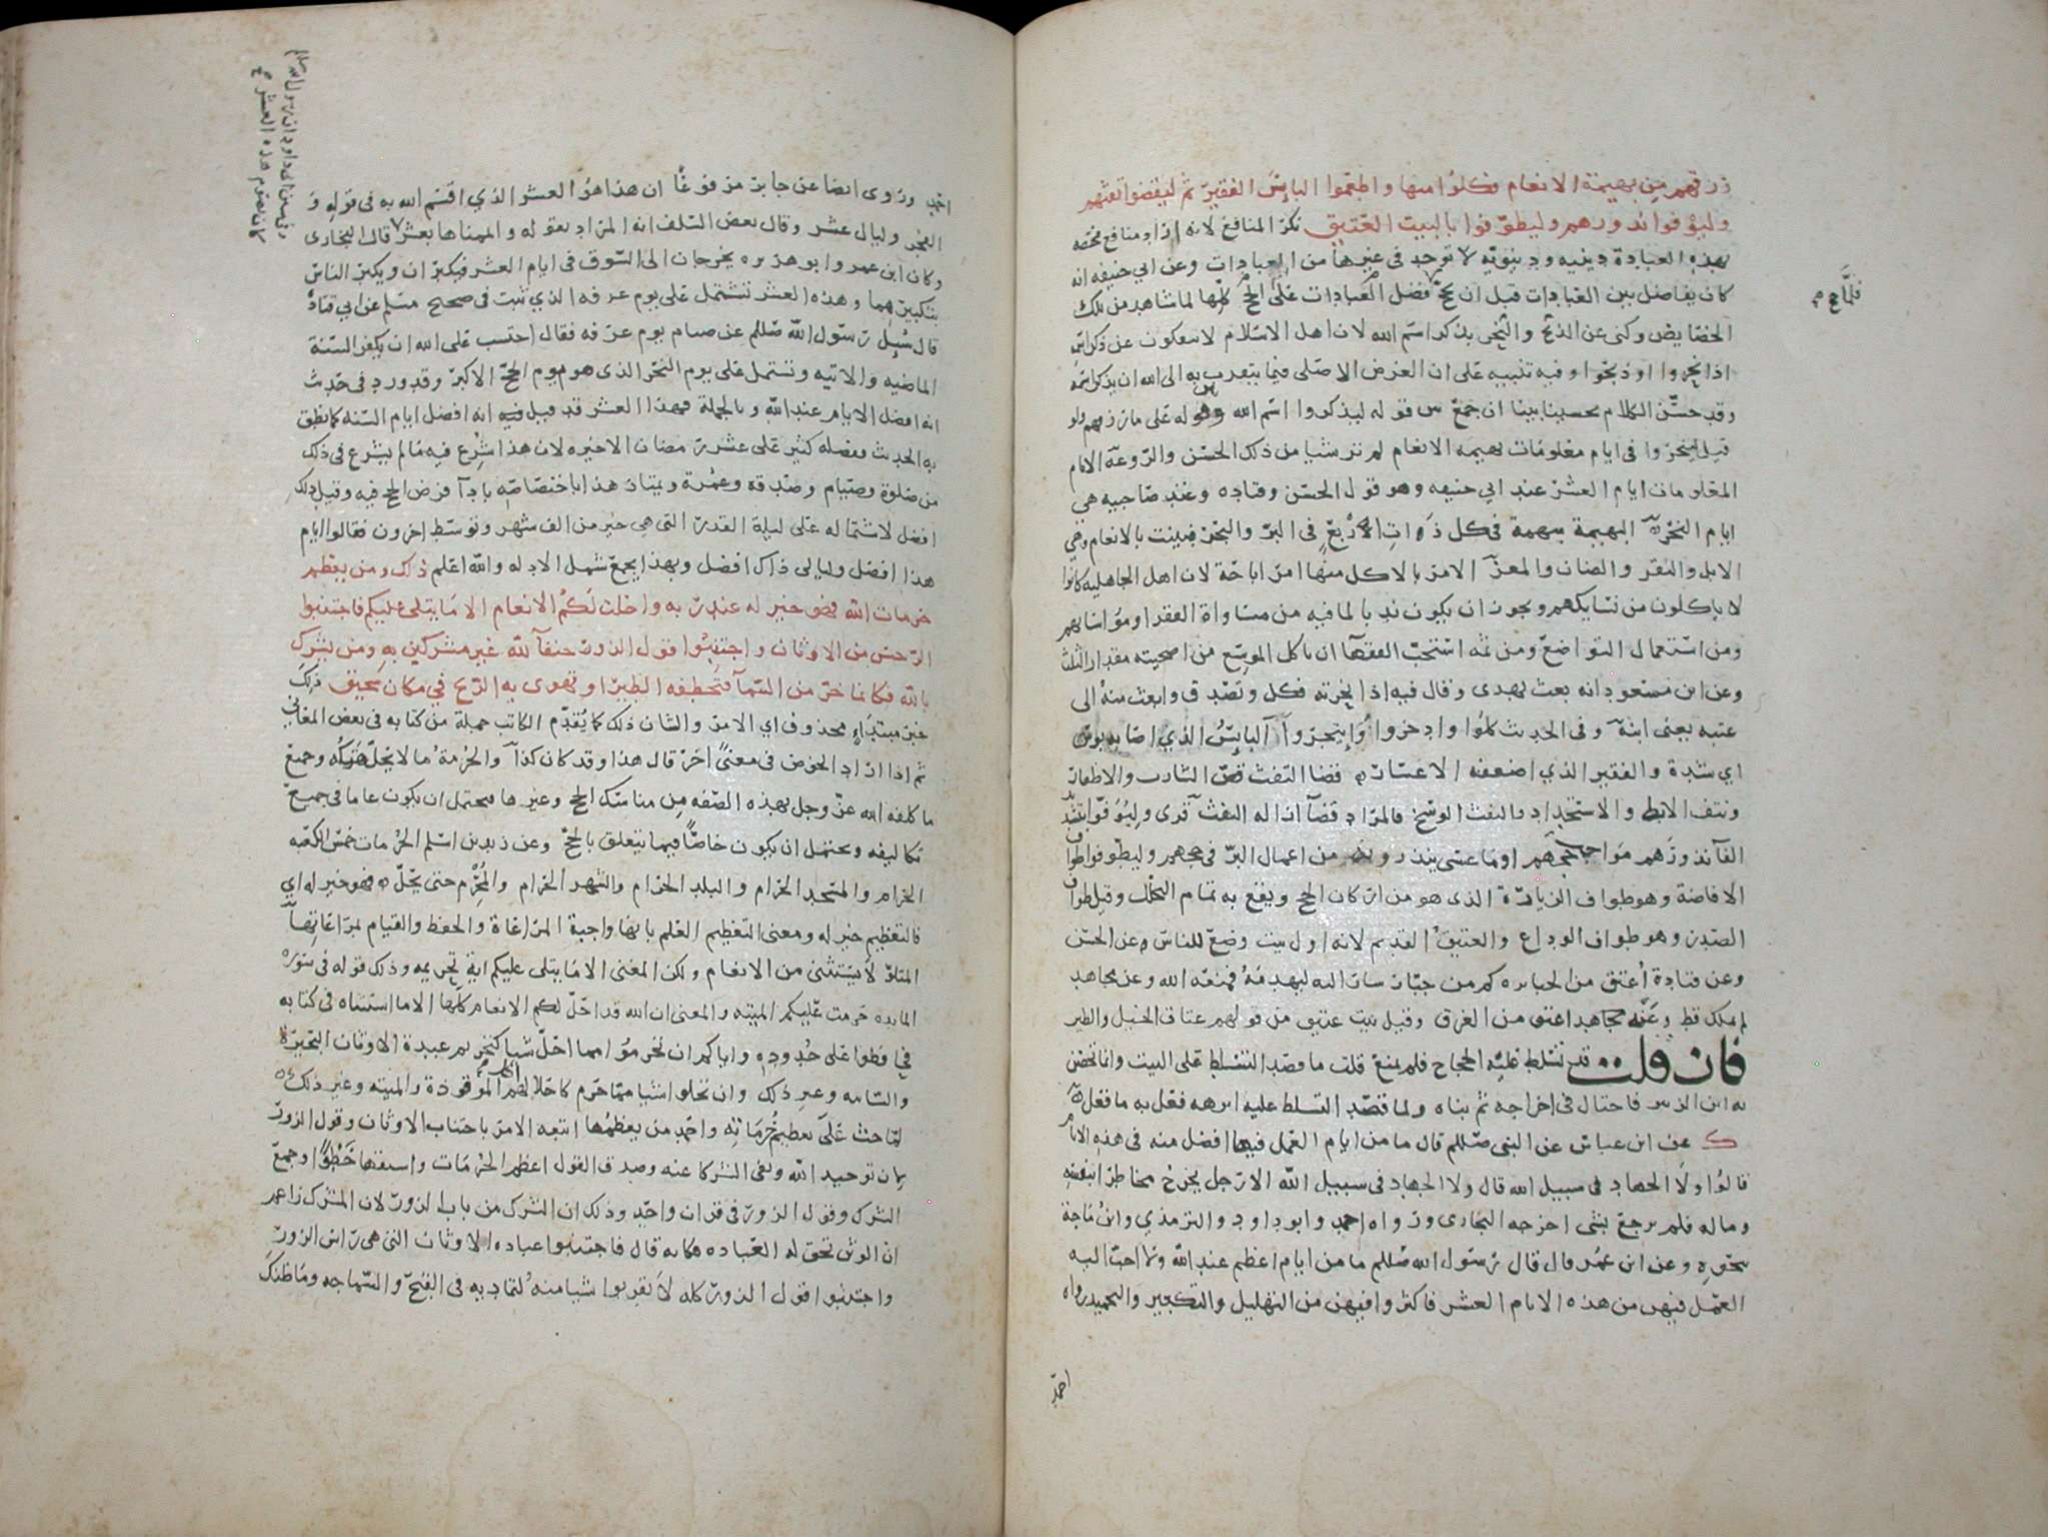 رزقهم من بهيمة الانعام فكلوا منها واطعموا البائس الفقير ثم ليقضوا تفثهم
وليوفوا نذورهم وليطوفوا بالبيت العتيق نكر المنافع لانه اراد منافع مختصه
بهذه العبادة دينيه ودنيويه لا توجد في غيرها من العبادات وعن ابي حنيفه انه
كان يفاضل بين العبادات قبل ان يحج فضل الحج على العبادات كلها لما شاهد من تلك
فلما حج
الخصايص وكنى عن الذبح والنحر بذكر اسم الله لان اهل الاسلام لا ينفكون عن ذكر اسمه
اذا نحروا او ذبحوا وفيه تنبيه على ان الغرض الاصلي فيما يتقرب به الى الله ان يذكر اسمه
وقد حسن الكلام تحسينا بينا ان جمع بين قوله ليذكروا اسم الله وقوله على ما رزقهم ولو
قيل لينحروا في ايام معلومات بهيمه الانعام لم تر شيا من ذلك الحسن والروعه الايام
المعلومات ايام العشر عند ابي حنيفه وهو قول الحسن وقتاده وعند صاحبيه هي
ايام النحر البهيمة مبهمة في كل ذات اربع في البر والبحر فبينت بالانعام وهي
الابل والبقر والضان والمعز الامر بالاكل منها امر اباحة لان اهل الجاهليه كانوا
لا ياكلون من نسايكهم ويجوز ان يكون ندبا لما فيه من مساواة الفقرا ومواساتهم
ومن استعمال التواضع ومن ثمه استحب الفقها ان ياكل الموسع من اضحيته مقدار الثلث
وعن ابن مسعود انه بعث بهدي وقال فيه اذا نحرته فكل وتصدق وابعث منه الى
عتبه يعني ابنه وفي الحديث كلوا وادخروا وايتجروا البائس الذي اصابه بوس
اي شدة والفقير الذي اضعفه الاعسار قضا التفث قص الشارب والاظفار
ونتف الابط والاستحداد والتفث الوسخ فالمراد قضا ازالة التفث قرى وليوفوا بتشديد
الفا نذورهم مواجب حجهم او ما عسى ينذرونه من اعمال البر في حجهم وليطوفوا طواف
الافاضة وهو طواف الزيارة الذي هو من اركان الحج ويقع به تمام التحلل وقيل طواف
الصدر وهو طواف الوداع والعتيق القديم لانه اول بيت وضع للناس عن الحسن
وعن قتادة اعتق من الجبابره كم من جبار سار اليه ليهدمه فمنعه الله وعن مجاهد
لم يملك قط وعنه مجاهد اعتق من الغرق وقيل بيت عتيق من قولهم عتاق الخيل والطير
فان قلت قد تسلط عليه الحجاج فلم يمنع قلت ما قصد التسلط على البيت وانما تحصن
به ابن الزبير فاحتال في اخراجه ثم بناه ولما قصد التسلط عليه ابرهه فعل به ما فعل
ك عن ابن عباس عن النبي صللم قال ما من ايام العمل فيها افضل منه في هذه الايام
قالوا ولا الجهاد في سبيل الله قال ولا الجهاد في سبيل الله الا رجل يخرج يخاطر بنفسه
وماله فلم يرجع بشي اخرجه البخاري ورواه احمد وابو داود والترمذي وابن ماجة
بنحوه وعن ابن عمر قال قال رسول الله صللم ما من ايام اعظم عند الله ولا احب اليه
العمل فيهن من هذه الايام العشر فاكثروا فيهن من التهليل والتكبير والتحميد رواه
احمد
احمد وروى ايضا عن جابر مرفوعا ان هذا هو العشر الذي اقسم الله به في قوله و
الفجر وليال عشر وقال بعض السلف انه المراد بقوله واتممناها بعشر قال البخاري
وفي سنن ابي داود ان رسول الله صللم
كان يصوم هذه العشر
وكان ابن عمر وابو هريره يخرجان الى السوق في ايام العشر فيكبران ويكبر الناس
بتكبيرهما وهذه العشر تشتمل على يوم عرفه الذي ثبت في صحيح مسلم عن ابي قتاده
قال سيل رسول الله صللم عن صيام يوم عرفه فقال احتسب على الله ان يكفر السنة
الماضيه والاتيه وتشتمل على يوم النحر الذي هو يوم الحج الاكبر وقد ورد في حديث
انه افضل الايام عند الله وبالجملة فهذا العشر قد قيل فيه انه افضل ايام السنه كما نطق
به الحديث وفضله كثير على عشر رمضان الاخيره لان هذا شرع فيه ما لم يشرع في ذلك
من صلوة وصيام وصدقة وعمرة ويمتاز هذا باختصاصه بادآ فرض الحج فيه وقيل ذلك
افضل لاشتماله على ليلة القدر التي هي خير من الف شهر وتوسط اخرون فقالوا ايام
هذا افضل وليالي ذاك افضل وبهذا يجمع شمل الادله والله اعلم ذلك ومن يعظم
حرمات الله فهو خير له عند ربه واحلت لكم الانعام الا ما يتلى عليكم فاجتنبوا
الرجس من الاوثان واجتنبوا قول الزور حنفآ لله غير مشركين به ومن يشرك
بالله فكانما خر من السمآ فتخطفه الطير او تهوى به الريح في مكان سحيق ذلك
خبر مبتدا محذوف اي الامر والشان ذلك كما يقدم الكاتب جملة من كتابه في بعض المعاني
ثم اذا اراد الخوض في معنى اخر قال هذا وقد كان كذا والحرمة ما لا يحل هتكه وجميع
ما كلفه الله عز وجل بهذه الصفه من مناسك الحج وغيرها يحتمل ان يكون عاما في جميع
تكاليفه ويحتمل ان يكون خاصا فيما يتعلق بالحج وعن زيد بن اسلم الحرمات خمس الكعبه
الحرام والمسجد الحرام والبلد الحرام والشهر الحرام والمحرم حتى يحل فهو خير له اي
فالتعظيم خير له ومعنى التعظيم العلم بانها واجبة المراعاة والحفظ والقيام بمراعاتها
المتلو لا يستثنى من الانعام ولكن المعنى الا ما يتلى عليكم اية تحريمه وذلك قوله في سورة
المايده حرمت عليكم الميته والمعنى ان الله قد احل لكم الانعام كلها الا ما استثناه في كتابه
فحافظوا على حدوده واياكم ان تحرموا مما احل شيا كتحريم عبدة الاوثان البحيرة
والسايبه وغير ذلك وان تحلوا شيا مما حرم كاحلالهم اكل الموقوذة والميته وغير ذلك
لما حث على تعظيم حرماته واحمد من يعظمها اتبعه الامر باجتناب الاوثان وقول الزور
بان توحيد الله ونفي الشركا عنه وصدق القول اعظم الحرمات واسبقها خطوا وجمع
الشرك وقول الزور في قران واحد وذلك ان الشرك من باب الزور لان المشرك زاعم
ان الوثن تحق له العباده فكانه قال فاجتنبوا عباده الاوثان التي هي راس الزور
واجتنبوا قول الزور كله لا تقربوا شيا منه لتماديه في القبح والسماجه وما ظنك